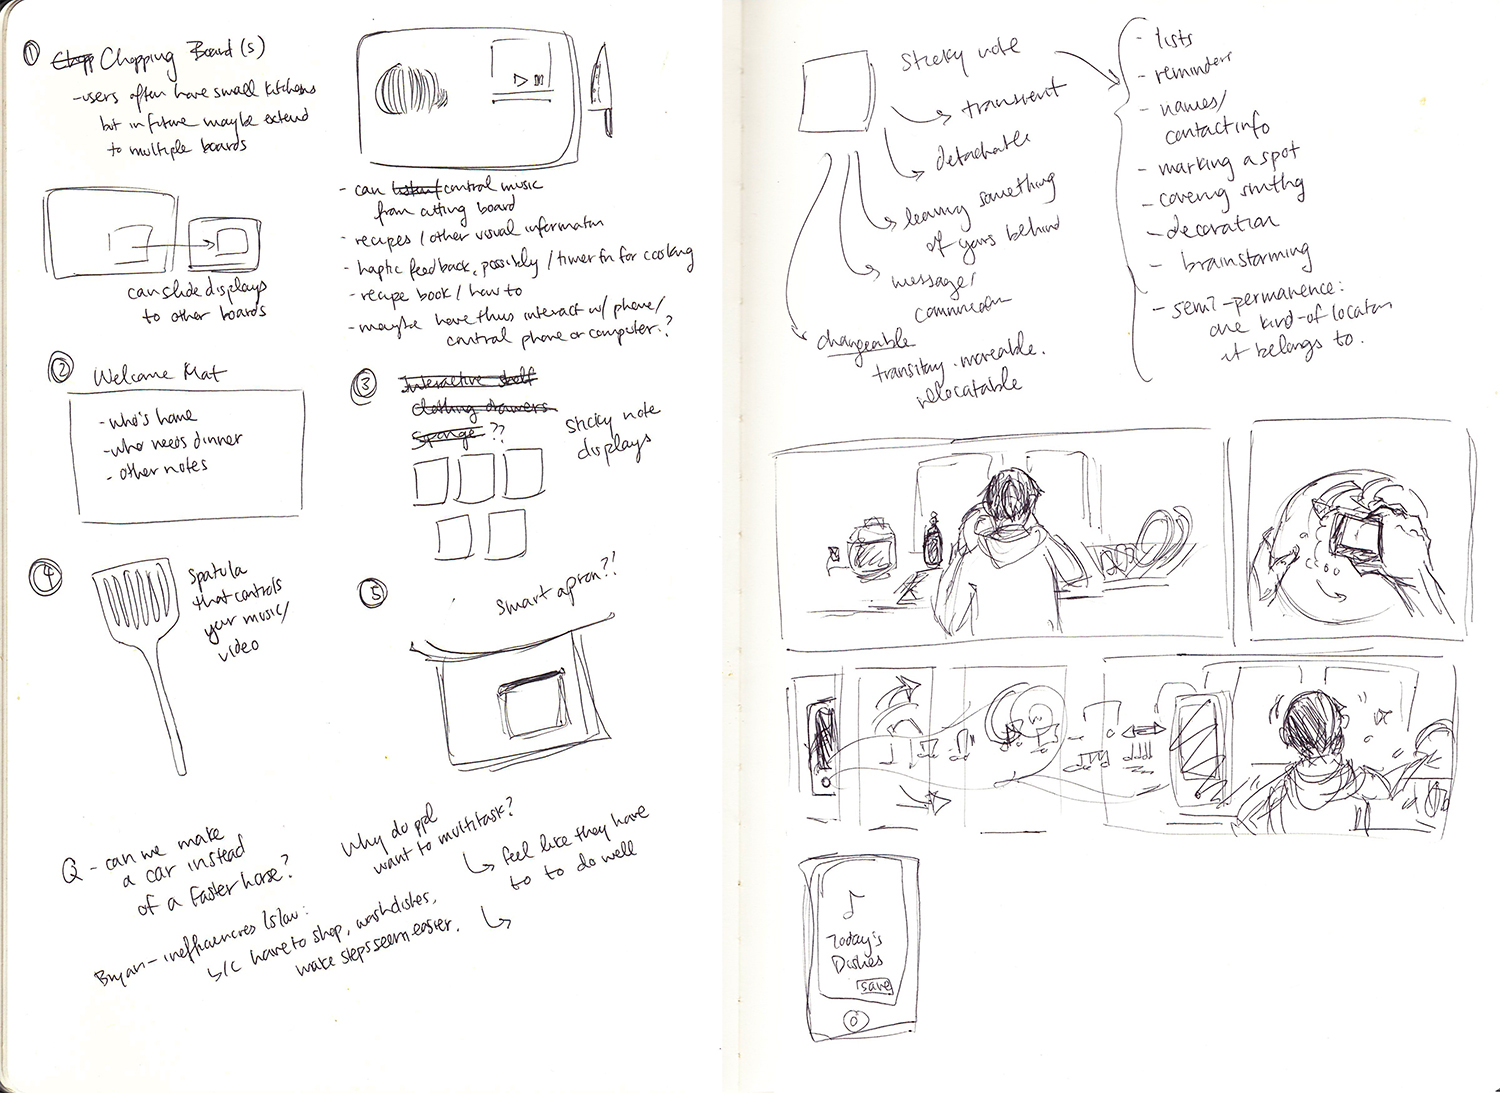 ① Chopping Board(s)
- users often have small kitchens
but in future maybe extend
to multiple boards
can slide displays
to other boards
- can control music
from cutting board
- recipes / other visual information
- haptic feedback, possibly / timer fn for cooking
- recipe book / how to
- maybe have thus interact w/ phone/
control phone or computer?
② Welcome Mat
- who's home
- who needs dinner
- other notes
③ Interactive shelf
clothing drawers
sponge ??
sticky note
displays
④ spatula
that controls
your music/
video
⑤ smart apron?!
Q - can we make
a car instead
of a faster horse?
Why do ppl
want to multitask?
↳ feel like they have
to to do well
Bryan - inefficiencies
b/c have to shop, wash dishes,
make steps seem easier.
sticky note
transient
detachable
leaving something
of yours behind
message/
changeable
transitory. moveable.
relocatable
- lists
- reminders
- names/
contact info
- marking a spot
- covering smthg
- decoration
- brainstorming
- semi-permanence:
one kind-of location
it belongs to.
Today's
Dishes
save